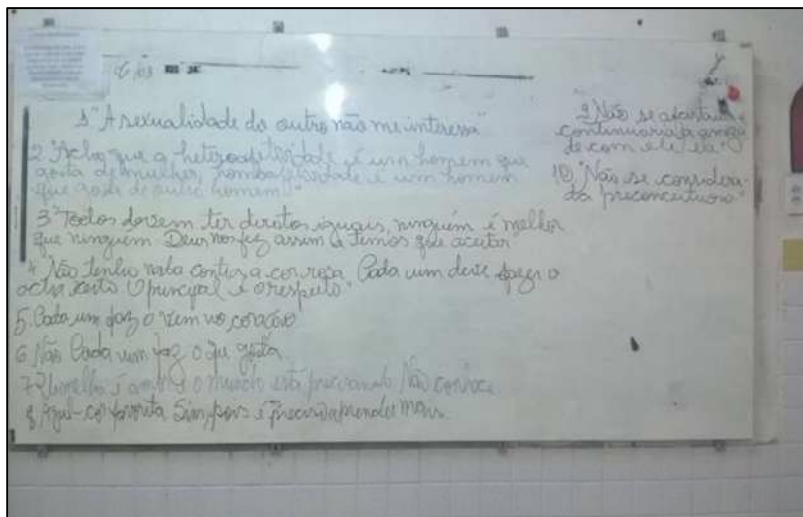 1 "A sexualidade do outro não me interessa"
2 "Acho que a heteroafetividade é um homem que
gosta de mulher, homoafetividade é um homem
que gosta de outro homem."
3 "Todos devem ter direitos iguais, ninguém é melhor
que ninguém Deus nos fez assim e temos que aceitar"
4 "Não tenho nada contra a cor rosa Cada um deve fazer o
acha certo O principal é o respeito"
5. Cada um faz o vem no coração
6 Não Cada um faz o que gosta
7 Vermelho é amor e o mundo está precisando Não conhece
8 Azul-cor favorita Sim, pois é preciso aprender mais.
9 Não se
continuaria a
de com ele ela"
10 "Não se considera
preconceituoso"